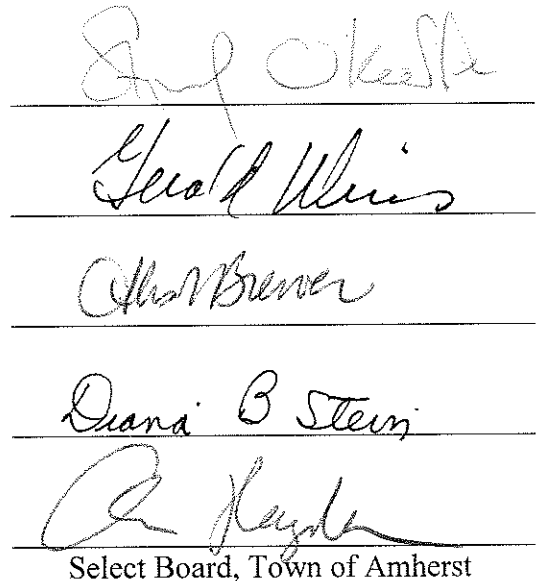 O'Keeffe
Gerald Weiss
Brewer
Diana B Stein
Hayden
Select Board, Town of Amherst